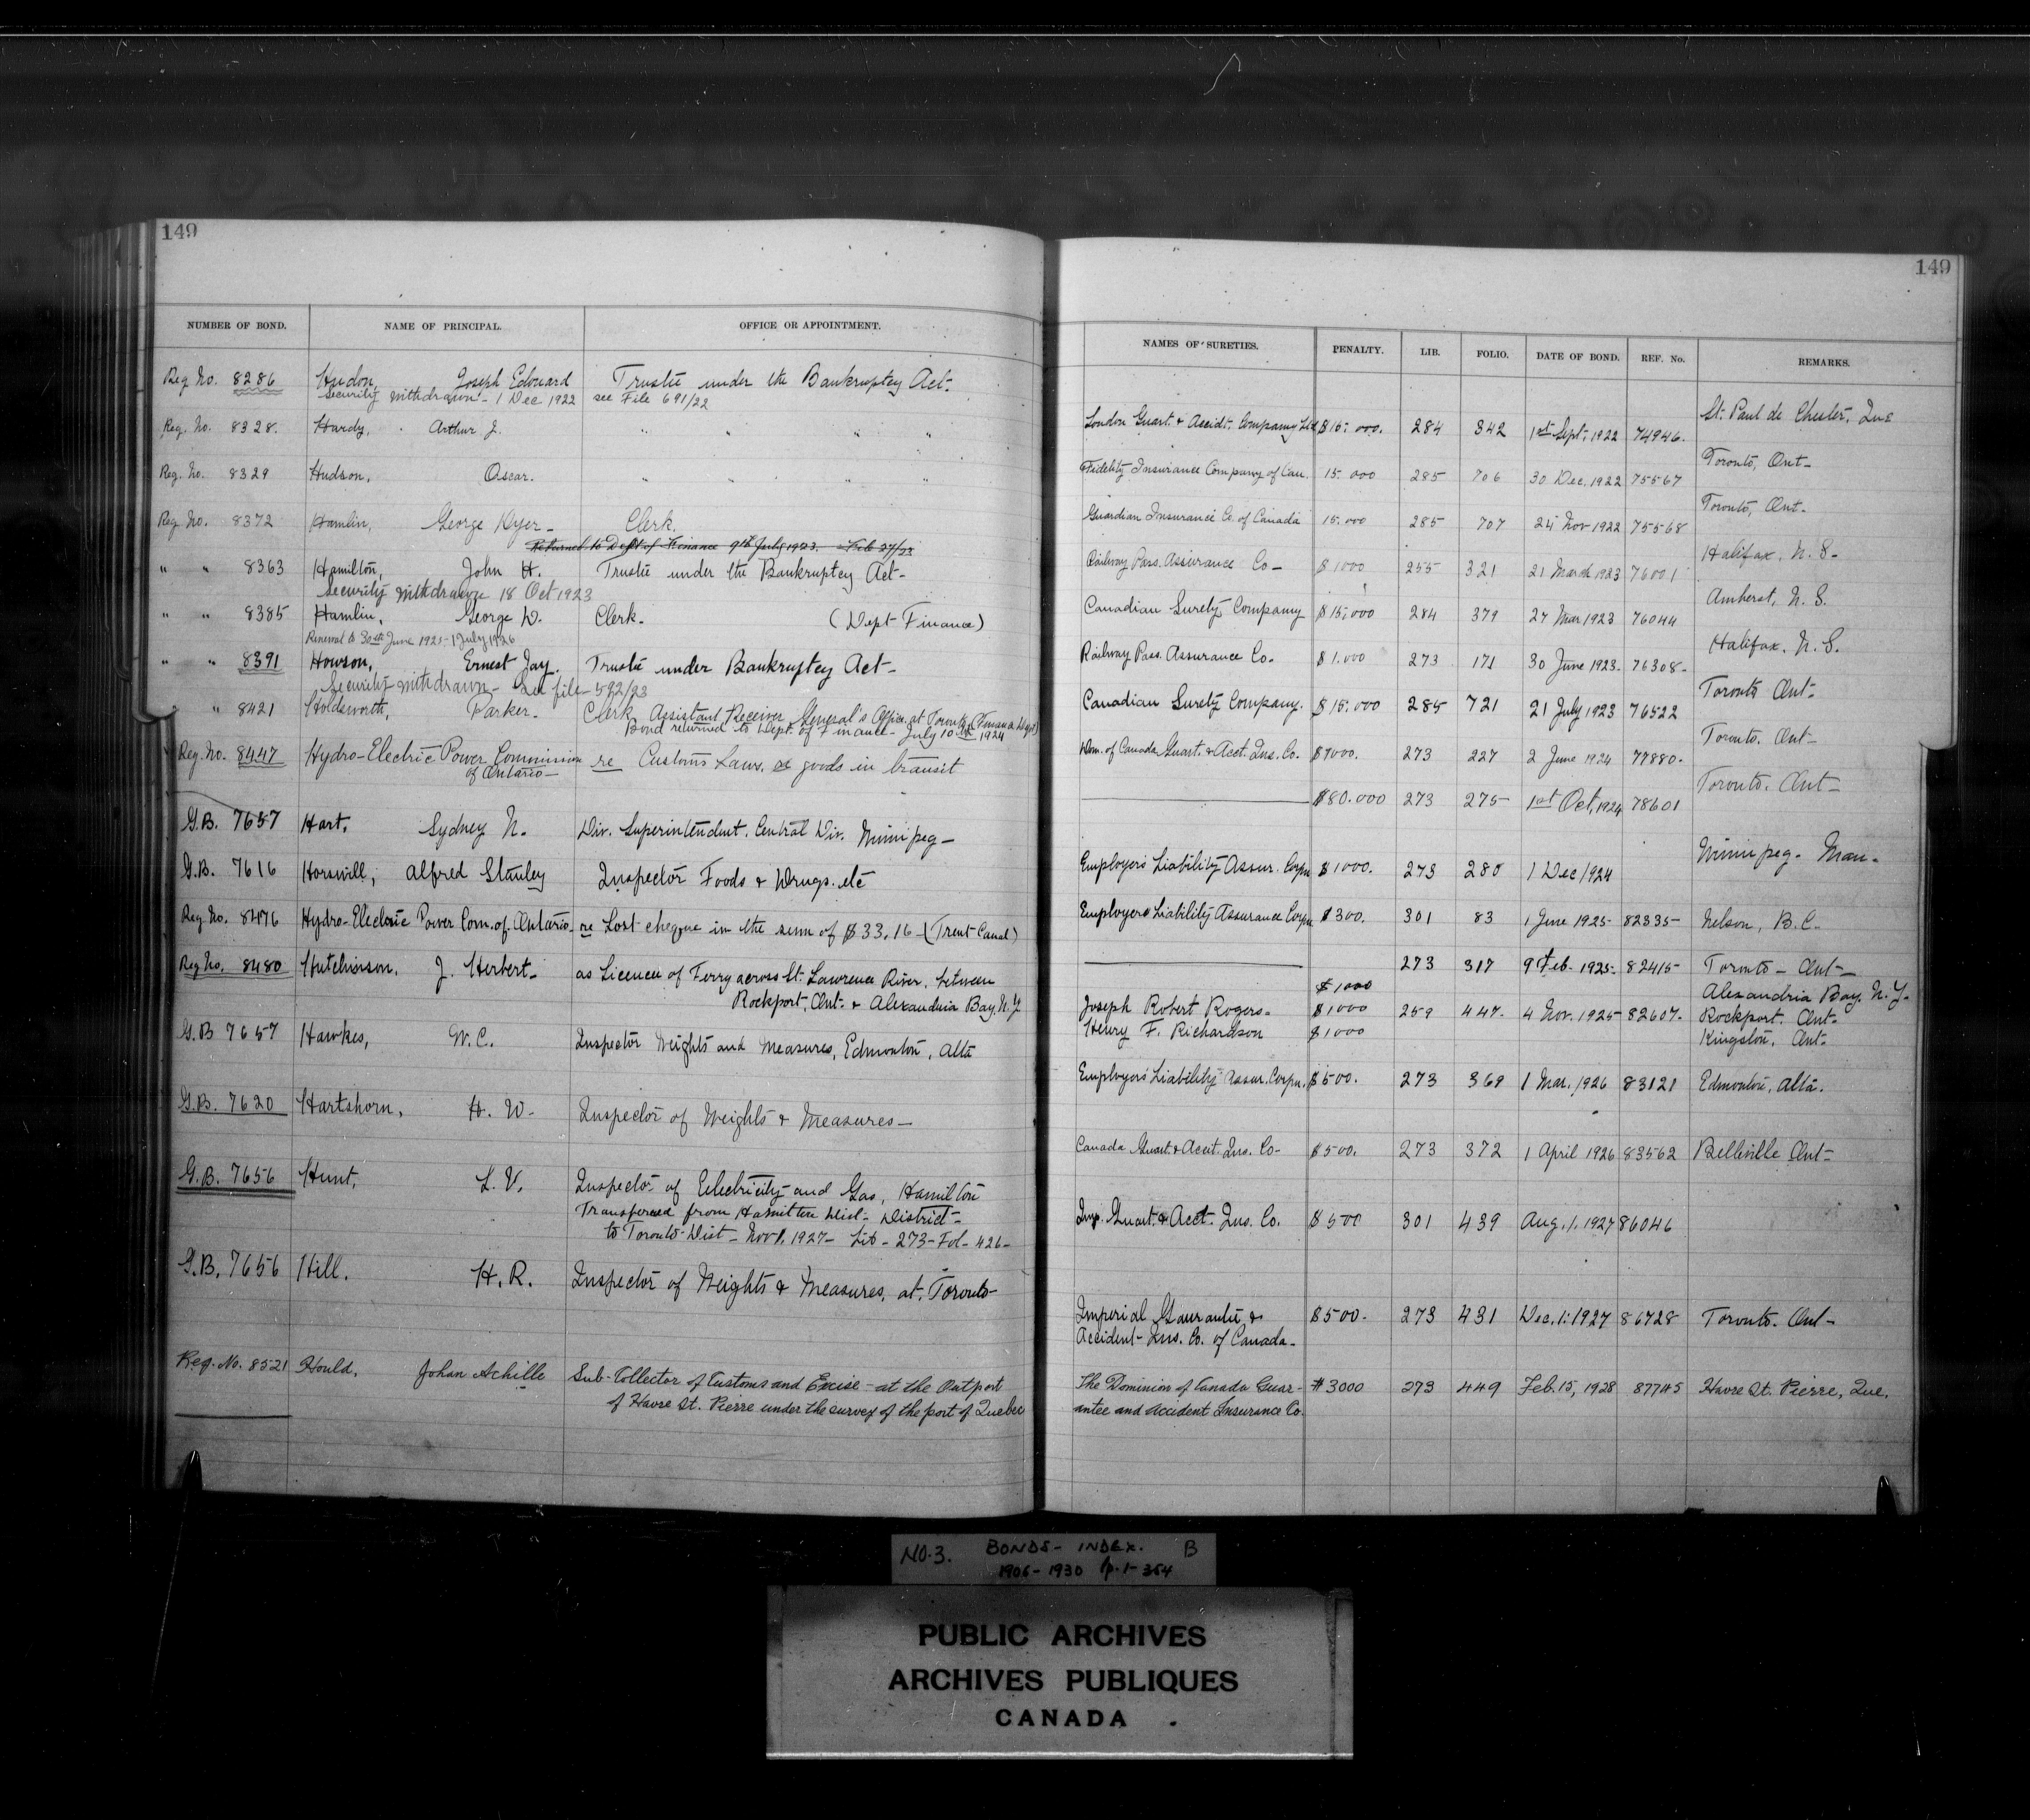 149
NUMBER OF BOND. NAME OF PRINCIPAL. OFFICE OR APPOINTMENT.
Reg. No. 8286 Hudon, Joseph Edouard Trustee under the Bankruptcy Act-
Security withdrawn - 1 Dec 1922 see File 691/22
Reg. No. 8328. Hardy, Arthur J. " " " "
Reg. No. 8329 Hudson, Oscar. " " " "
Reg. No. 8372 Hamlin, George Dyer- Clerk.
Returned to Dept of Finance 9th July 1923. File 27/23
" " 8363 Hamilton, John H. Trustee under the Bankruptcy Act-
Security withdrawn 18 Oct 1923
" " 8385 Hamlin, George D. Clerk. (Dept Finance)
Renewal to 30th June 1925 - 1 July 1926
" " 8391 Howson, Ernest Jay. Trustee under Bankruptcy Act-
Security withdrawn- See file- 592/23
" " 8421 Holdsworth, Parker- Clerk Assistant Receiver General's Office, at Toronto (Finance Dept)
Bond returned to Dept. of Finance- July 10th 1924
Reg. No. 8447 Hydro-Electric Power Commission re Customs Laws, goods in transit
of Ontario-
G.B. 7657 Hart, Sydney N. Div. Superintendent. Central Div. Winnipeg-
G.B. 7616 Horswill, Alfred Stanley Inspector Foods & Drugs. etc
Reg. No. 8476 Hydro-Electric Power Com. of Ontario re Lost cheque in the sum of $33.16 - (Trent Canal)
Reg No. 8480 Hutchinson, J. Herbert- as Licencee of Ferry across St. Lawrence River, between
Rockport, Ont. & Alexandria Bay. N.Y.
G.B 7657 Hawkes, W.C. Inspector Weights and Measures, Edmonton, Alta
G.B. 7620 Hartshorn, H. W. Inspector of Weights & Measures-
G.B. 7656 Hunt, L. V. Inspector of Electricity and Gas, Hamilton
Transferred from Hamilton Dist- District-
to Toronto Dist- Nov 1, 1927- Lib- 273- Fol- 426-
G.B. 7656 Hill. H. R. Inspector of Weights & Measures, at Toronto-
Reg. No. 8521 Hould, Johan Achille Sub-Collector of Customs and Excise - at the Outport
of Havre St. Pierre under the survey of the port of Quebec
149
NAMES OF SURETIES. PENALTY. LIB. FOLIO. DATE OF BOND. REF. No. REMARKS.
London Guart. & Accidt. Company Ltd $15.000. 284 342 1st Sept. 1922 74946. St. Paul de Chester, Que
Fidelity Insurance Company of Can. 15.000 285 706 30 Dec. 1922 75567 Toronto, Ont-
Guardian Insurance Co. of Canada 15.000 285 707 24 Nov 1922 75568 Toronto, Ont-
Railway Pass. Assurance Co- $1000 255 321 21 March 1923 76001 Halifax. N.S-
Canadian Surety Company $15,000 284 379 27 Mar 1923 76044 Amherst, N.S.
Railway Pass. Assurance Co. $1.000 273 171 30 June 1923- 76308- Halifax. N.S.
Canadian Surety Company. $15.000 285 721 21 July 1923 76522 Toronto Ont-
Dom. of Canada Guart. & Acct. Ins. Co. $1000. 273 227 2 June 1924 77880- Toronto. Ont-
$80.000 273 275 1st Oct, 1924 78601 Toronto. Ont-
Employers Liability Assur. Corpn $1000. 273 280 1 Dec 1924 Winnipeg- Man-
Employers Liability Assurance Corpn $300. 301 83 1 June 1925 82335- Nelson, B.C.
273 317 9 Feb. 1925- 82415- Toronto- Ont-
$1000 Alexandria Bay. N.Y.
Joseph Robert Rogers- $1000 259 447- 4 Nov. 1925 82607- Rockport. Ont-
Henry F. Richardson $1000 Kingston, Ont-
Employers' Liability Assur. Corpn. $500. 273 369 1 Mar. 1926 83121 Edmonton, Alta.
Canada Guart. & Acct. Ins. Co- $500. 273 372 1 April 1926 83562 Belleville Ont-
Imp. Guart. & Acct. Ins. Co. $500 301 439 Aug. 1. 1927 86046
Imperial Guarantee & $500- 273 431 Dec. 1. 1927 86728 Toronto. Ont-
Accident- Ins. Co. of Canada-
The Dominion of Canada Guar- $3000 273 449 Feb. 15, 1928 87745 Havre St. Pierre, Que,
antee and Accident Insurance Co.
NO. 3. BONDS - INDEX. B
1906 - 1930 p. 1-354
PUBLIC ARCHIVES
ARCHIVES PUBLIQUES
CANADA